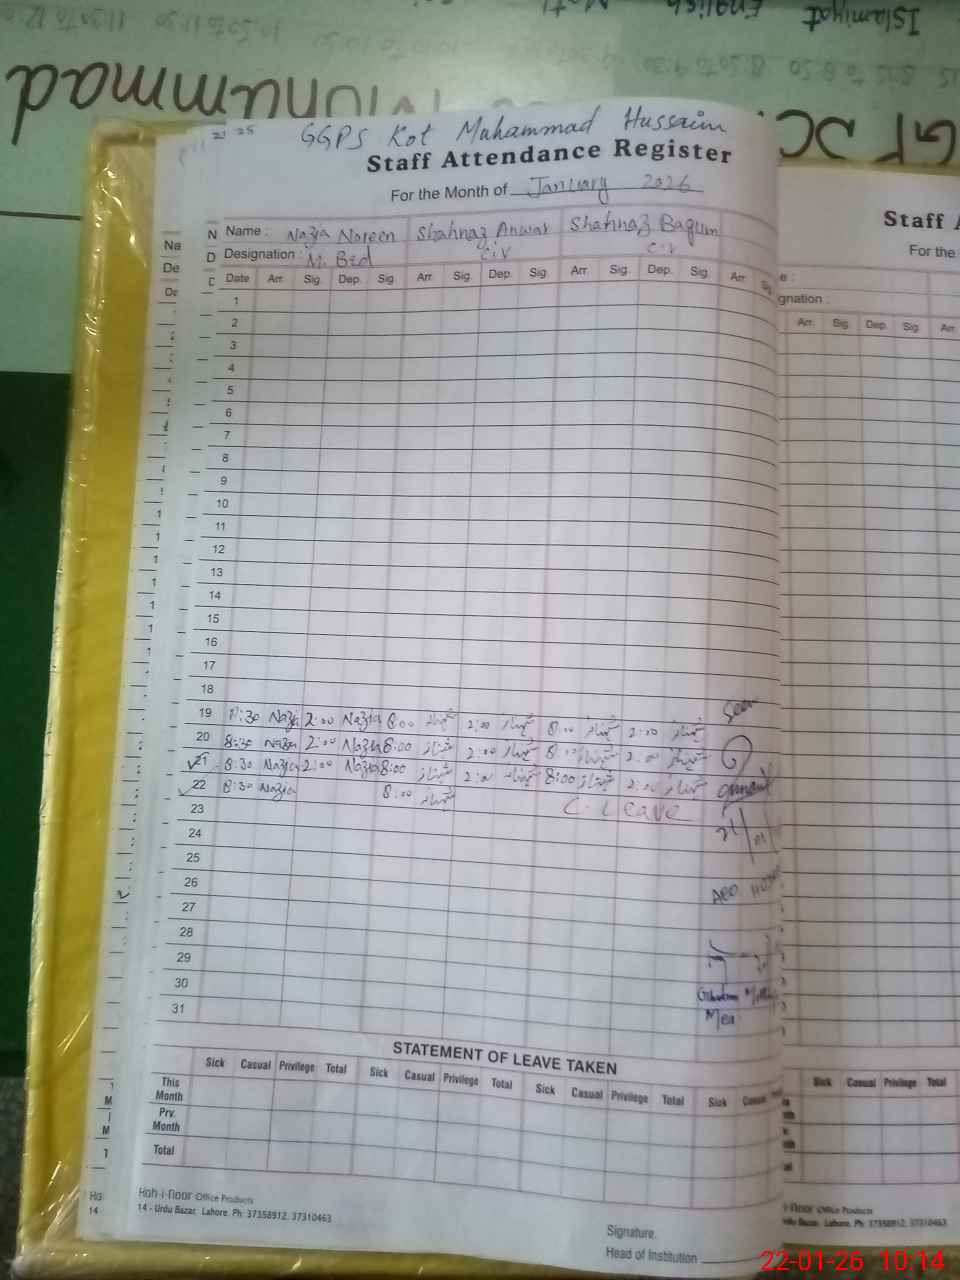 Islamiyat English
GGPS Kot Muhammad Hussain
Staff Attendance Register
For the Month of January 2026
Name : Nazia Noreen Shahnaz Anwar Shahnaz Bagum
Designation : M. Bed C.iV C.iV
Date Arr. Sig. Dep. Sig. Arr. Sig. Dep. Sig. Arr. Sig. Dep. Sig. Arr.
1
2
3
4
5
6
7
8
9
10
11
12
13
14
15
16
17
18
19 8:30 Nazia 2:00 Nazia 8:00 شہناز 2:00 شہناز 8:00 شہناز 2:00 شہناز
20 8:30 Nazia 2:00 Nazia 8:00 شہناز 2:00 شہناز 8:00 شہناز 2:00 شہناز
21 8:30 Nazia 2:00 Nazia 8:00 شہناز 2:00 شہناز 8:00 شہناز 2:00 شہناز
22 8:30 Nazia 8:00 شہناز C. Leave
23
24
25
26
27
28
29
30
31
Seen
AEO
Mea
STATEMENT OF LEAVE TAKEN
Sick Casual Privilege Total Sick Casual Privilege Total Sick Casual Privilege Total Sick
This Month
Prv. Month
Total
Koh-i-noor Office Products
14 - Urdu Bazar, Lahore. Ph: 37358912, 37310463
Signature.
Head of Institution
Staff
For the
Arr. Sig. Dep. Sig. Arr.
Sick Casual Privilege Total
Office Products
Urdu Bazar, Lahore. Ph: 37358912, 37310463
22-01-26 10:14